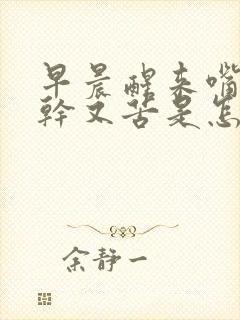 早晨醒来嘴
幹又苦是怎
余静一